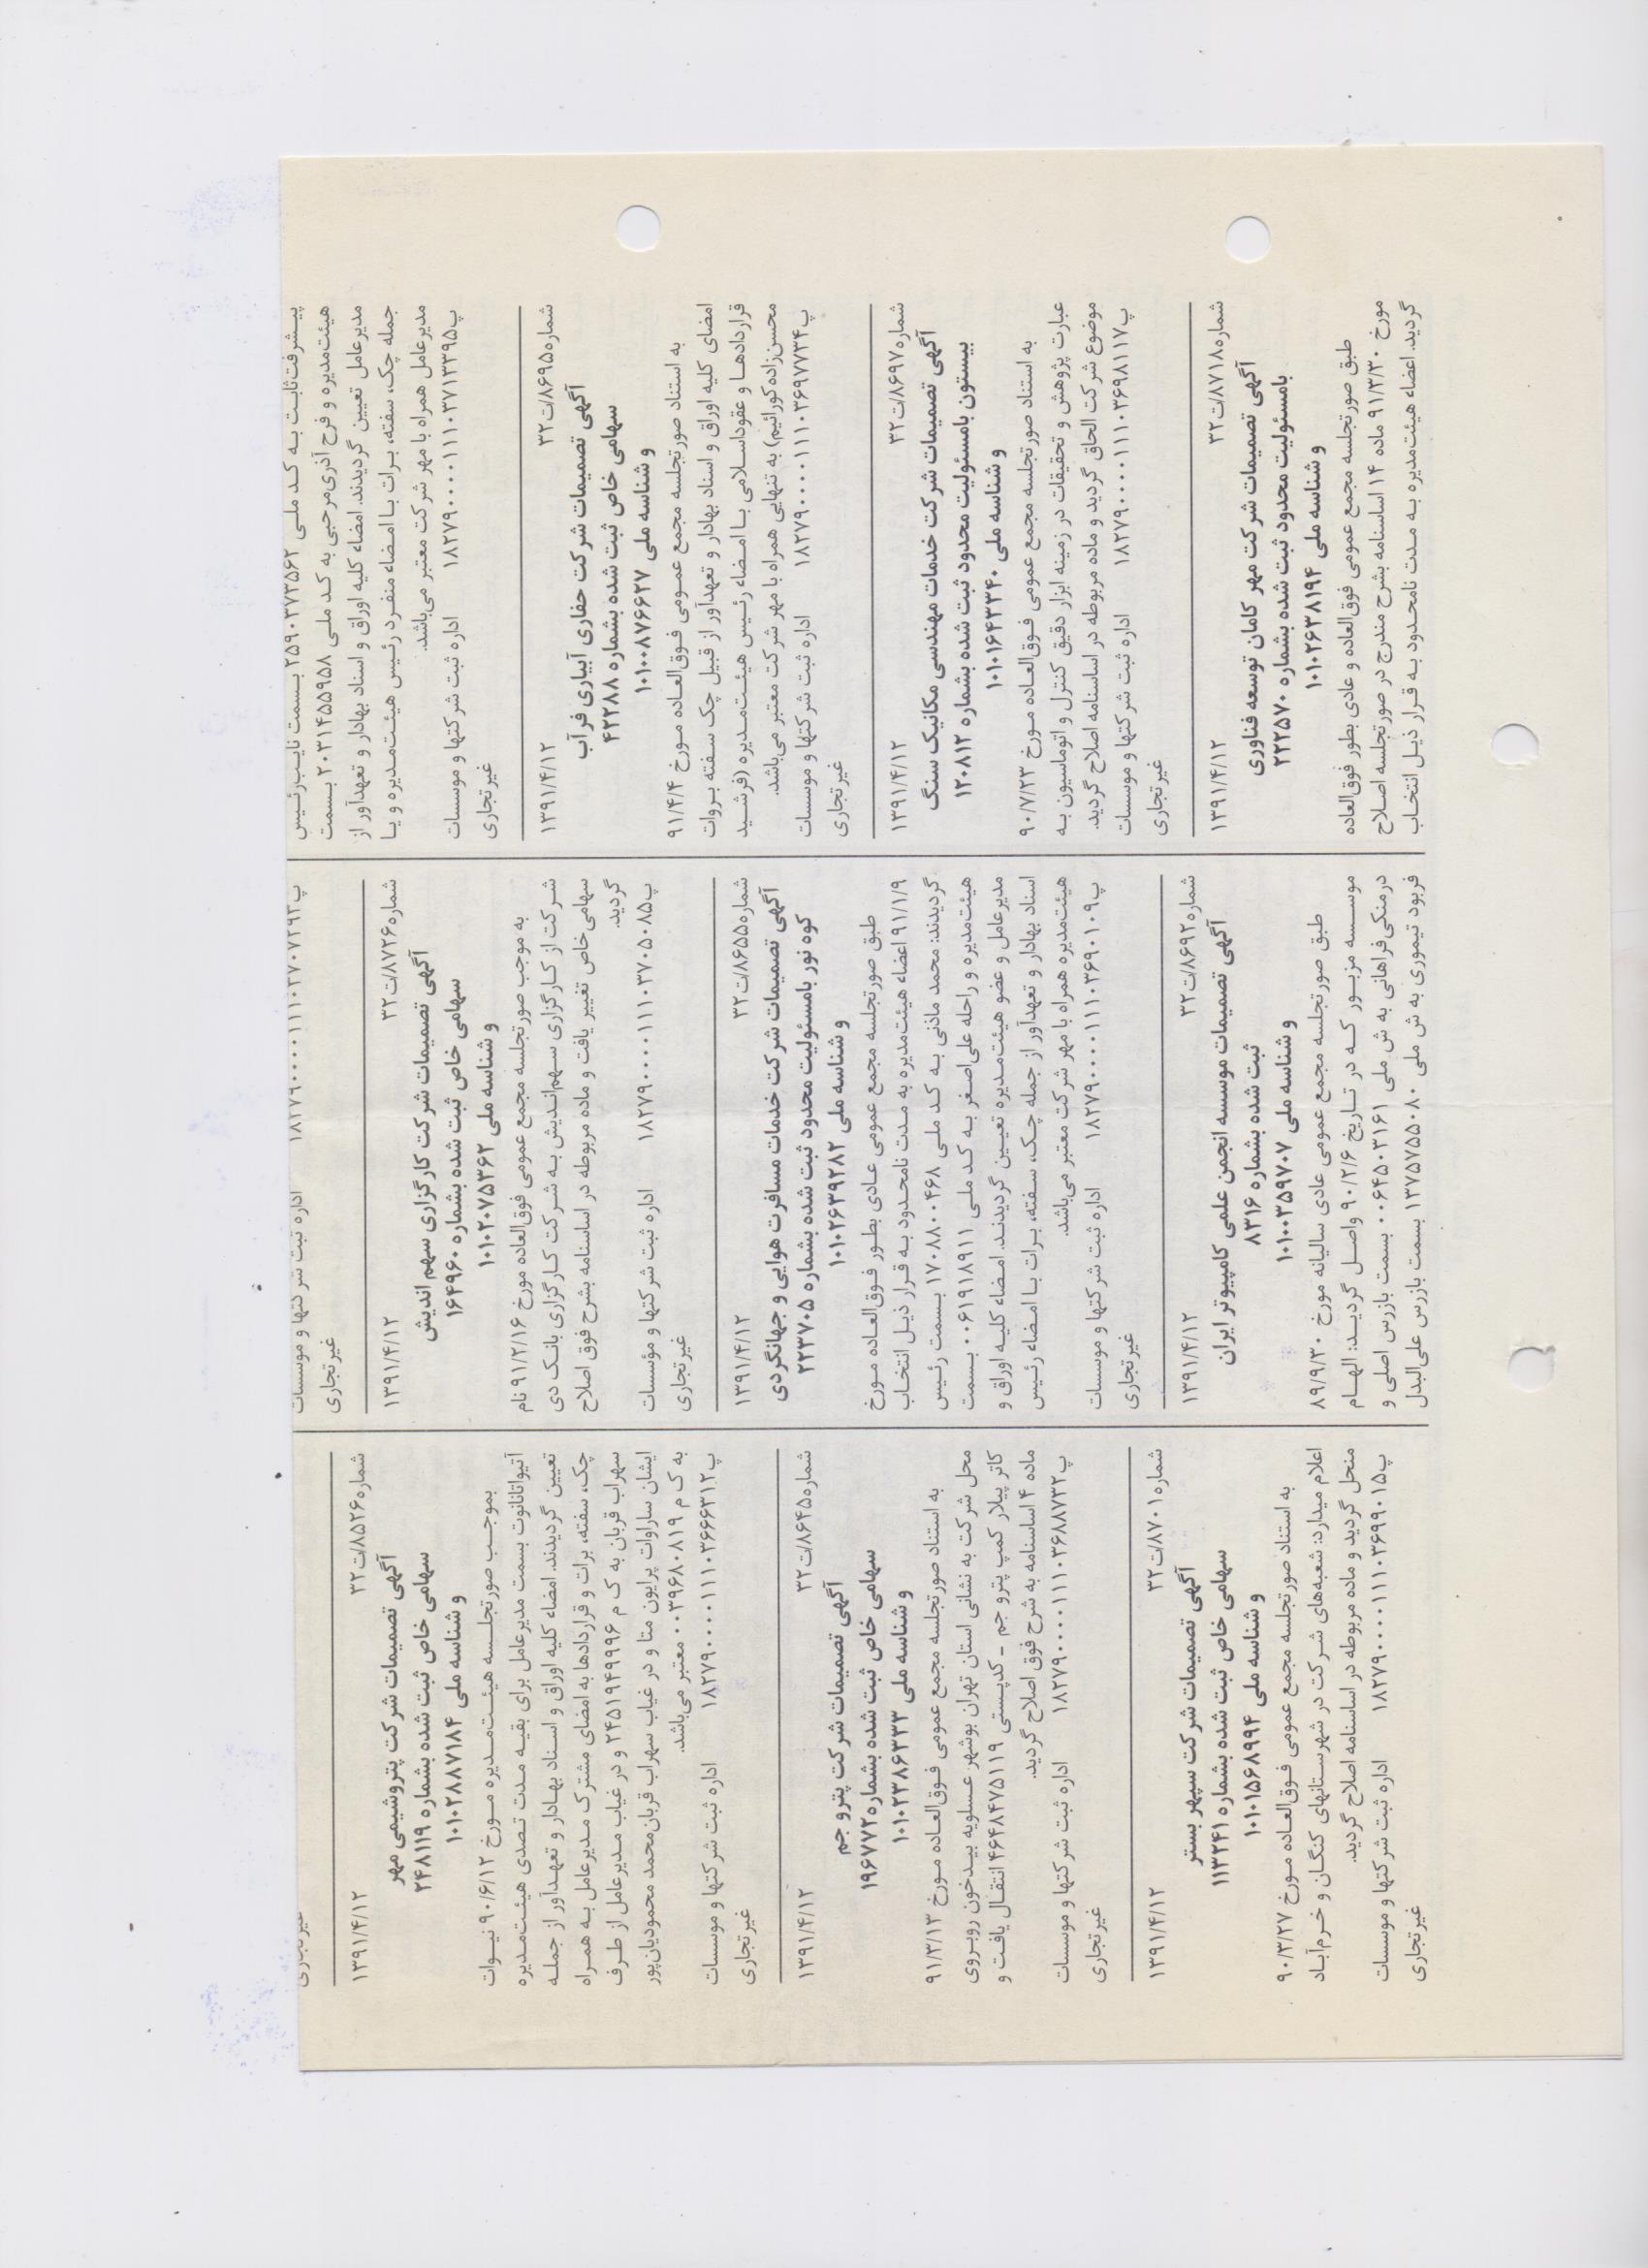 پیـشرفت‌ثابـت بـه کـد ملـی ۲۵۹۰۳۷۳۵۶۲ بـسمت نایـب‌رئـیس
هیئت‌مدیره و فرح آذری‌مرحبی به کـد ملـی ۲۰۳۱۴۵۵۹۵۸ بـسمت
مدیرعامل تعیین گردیدند. امضاء کلیه اوراق و اسناد بهادار و تعهدآور از
جمله چک، سفته، بـرات بـا امـضاء منفـرد رئـیس هیئت‌مـدیره و یـا
مدیرعامل همراه با مهر شرکت معتبر می‌باشد.
پ۱۸۲۷۹۰۰۰۰۱۱۱۰۳۷۱۳۳۹۵ اداره ثبت شرکتها و موسسات
غیرتجاری
شماره۸۶۹۵/ت۳۲ ۱۳۹۱/۴/۱۲
آگهی تصمیمات شرکت حفاری آبیاری فرآب
سهامی خاص ثبت شده بشماره ۴۲۲۸۸
و شناسه ملی ۱۰۱۰۰۸۷۶۶۲۷
به استناد صورتجلسه مجمع عمـومی فـوق‌العـاده مـورخ ۹۱/۴/۴
امضای کلیه اوراق و اسناد بهادار و تعهدآور از قبیل چک سـفته بـروات
قراردادهـا و عقوداسـلامی بـا امـضاء رئـیس هیئـت‌مـدیره (فرشـید
محسن‌زاده‌کورائیم) به تنهایی همراه با مهر شرکت معتبر می‌باشد.
پ۱۸۲۷۹۰۰۰۰۱۱۱۰۳۶۹۷۷۳۴ اداره ثبت شرکتها و موسسات
غیرتجاری
شماره۸۶۹۷/ت۳۲ ۱۳۹۱/۴/۱۲
آگهی تصمیمات شرکت خدمات مهندسی مکانیک سنگ
بیستون بامسئولیت محدود ثبت شده بشماره ۱۲۰۸۱۲
و شناسه ملی ۱۰۱۰۱۶۴۳۳۴۰
به استناد صورتجلسه مجمع عمومی فـوق‌العـاده مـورخ ۹۰/۷/۲۳
عبارت پژوهش و تحقیقات در زمینه ابزار دقیق کنترل و اتوماسیون بـه
موضوع شرکت الحاق گردید و ماده مربوطه در اساسنامه اصلاح گردید.
پ۱۸۲۷۹۰۰۰۰۱۱۱۰۳۶۹۸۱۱۷ اداره ثبت شرکتها و موسسات
غیرتجاری
شماره۸۷۱۸/ت۳۲ ۱۳۹۱/۴/۱۲
آگهی تصمیمات شرکت مهر کامان توسعه فناوری
بامسئولیت محدود ثبت شده بشماره ۲۲۲۵۷۰
و شناسه ملی ۱۰۱۰۲۶۳۸۱۹۴
طبق صورتجلسه مجمع عمومی فوق‌العاده و عادی بطور فوق‌العاده
مورخ ۹۱/۳/۳۰ ماده ۱۴ اساسنامه بشرح مندرج در صورتجلسه اصـلاح
گردید. اعضاء هیئت‌مدیره بـه مـدت نامحـدود بـه قـرار ذیـل انتخـاب
پ۱۸۲۷۹۰۰۰۰۱۱۱۰۳۷۰۷۲۹۳ اداره ثبت شرکتها و موسسات
غیرتجاری
شماره۸۷۲۶/ت۳۲ ۱۳۹۱/۴/۱۲
آگهی تصمیمات شرکت کارگزاری سهم اندیش
سهامی خاص ثبت شده بشماره ۱۶۴۹۶۰
و شناسه ملی ۱۰۱۰۲۰۷۵۳۶۲
به موجب صورتجلسه مجمع عمومی فوق‌العاده مورخ ۹۱/۲/۱۶ نام
شـرکت از کـارگزاری سـهم‌انـدیش بـه شـرکت کـارگزاری بانـک دی
سهامی خاص تغییر یافت و ماده مربوطه در اساسنامه بشرح فوق اصلاح
گردید.
پ۱۸۲۷۹۰۰۰۰۱۱۱۰۳۷۰۵۰۸۵ اداره ثبت شرکتها و مؤسسات
غیرتجاری
شماره۸۶۵۵/ت۳۲ ۱۳۹۱/۴/۱۲
آگهی تصمیمات شرکت خدمات مسافرت هوایی و جهانگردی
کوه نور بامسئولیت محدود ثبت شده بشماره ۲۲۳۷۰۵
و شناسه ملی ۱۰۱۰۲۶۳۹۲۸۲
طبق صورتجلسه مجمع عمومی عـادی بطـور فـوق‌العـاده مـورخ
۹۱/۱/۹ اعضاء هیئت‌مدیره به مـدت نامحـدود بـه قـرار ذیـل انتخـاب
گردیدند: محمد ماذنی بـه کـد ملـی ۱۷۰۸۸۰۰۴۶۸ بـسمت رئـیس
هیئت‌مدیره و راحله علی‌اصغر بـه کـد ملـی ۰۰۶۱۹۱۸۹۱۱ بـسمت
مدیرعامل و عضو هیئت‌مـدیره تعیـین گردیدنـد. امـضاء کلیـه اوراق و
اسناد بهادار و تعهدآور از جمله چـک، سـفته، بـرات بـا امـضاء رئـیس
هیئت‌مدیره همراه با مهر شرکت معتبر می‌باشد.
پ۱۸۲۷۹۰۰۰۰۱۱۱۰۳۶۹۰۱۰۹ اداره ثبت شرکتها و موسسات
غیرتجاری
شماره۸۶۹۲/ت۳۲ ۱۳۹۱/۴/۱۲
آگهی تصمیمات موسسه انجمن علمی کامپیوتر ایران
ثبت شده بشماره ۸۳۱۶
و شناسه ملی ۱۰۱۰۰۳۵۹۷۰۷
طبق صورتجلسه مجمع عمومی عادی سالیانه مورخ ۸۹/۹/۳۰
موسـسه مزبـور کـه در تـاریخ ۹۰/۲/۶ واصـل گردیـد: الهـام
درمنکی‌فراهانی به ش ملی ۰۰۶۴۵۰۳۱۶۱ بسمت بازرس اصلی و
فربود تیموری به ش ملی ۱۳۷۵۷۵۵۰۸۰ بسمت بازرس علی‌البدل
غیرتجاری
شماره۸۵۲۶/ت۳۲ ۱۳۹۱/۴/۱۲
آگهی تصمیمات شرکت پتروشیمی مهر
سهامی خاص ثبت شده بشماره ۲۴۸۱۱۹
و شناسه ملی ۱۰۱۰۲۸۸۷۱۸۴
بموجـب صورتجلـسه هیئـت‌مـدیره مـورخ ۹۰/۶/۱۲ نیـوات
آتیواتانانوت بسمت مدیرعامل برای بقیـه مـدت تـصدی هیئـت‌مـدیره
تعیین گردیدند. امضاء کلیه اوراق و اسـناد بهـادار و تعهـدآور از جملـه
چک، سفته، برات و قراردادها به امضای مشترک مـدیرعامل بـه همـراه
سهراب قربان به ک م ۲۴۵۱۹۴۹۹۹۶ و در غیاب مـدیرعامل از طـرف
ایشان ساراوات پرایون متا و در غیاب سهراب قربان‌محمد محمودیان‌پور
به ک م ۰۰۳۹۶۸۰۸۱۹ معتبر می‌باشد.
پ۱۸۲۷۹۰۰۰۰۱۱۱۰۳۶۶۶۳۱۲ اداره ثبت شرکتها و موسسات
غیرتجاری
شماره۸۶۴۵/ت۳۲ ۱۳۹۱/۴/۱۲
آگهی تصمیمات شرکت پترو جم
سهامی خاص ثبت شده بشماره۱۹۶۷۷۲
و شناسه ملی ۱۰۱۰۲۳۸۶۳۳۳
به استناد صورتجلسه مجمع عمومی فـوق‌العـاده مـورخ ۹۱/۳/۱۳
محل شرکت به نشانی استان تهران بوشهر عـسلویه بیـدخون روبـروی
کاتر پیلار کمپ پترو جم ـ کدپستی ۴۶۴۸۴۷۵۱۱۹ انتقـال یافـت و
ماده ۴ اساسنامه به شرح فوق اصلاح گردید.
پ۱۸۲۷۹۰۰۰۰۱۱۱۰۳۶۸۸۷۳۲ اداره ثبت شرکتها و موسسات
غیرتجاری
شماره۸۷۰۱/ت۳۲ ۱۳۹۱/۴/۱۲
آگهی تصمیمات شرکت سپهر بستر
سهامی خاص ثبت شده بشماره ۱۱۳۲۴۱
و شناسه ملی ۱۰۱۰۱۵۶۸۹۹۴
به استناد صورتجلسه مجمع عمومی فـوق‌العـاده مـورخ ۹۰/۳/۲۷
اعلام میدارد: شعبه‌های شـرکت در شهرسـتانهای کنگـان و خـرم‌آبـاد
منحل گردید و ماده مربوطه در اساسنامه اصلاح گردید.
پ۱۸۲۷۹۰۰۰۰۱۱۱۰۳۶۹۹۰۱۵ اداره ثبت شرکتها و موسسات
غیرتجاری